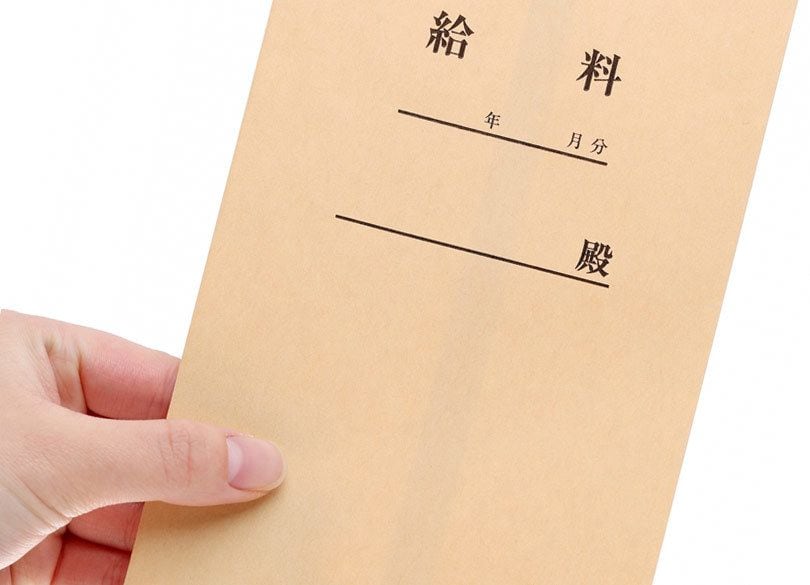 給 料
年 月分
殿